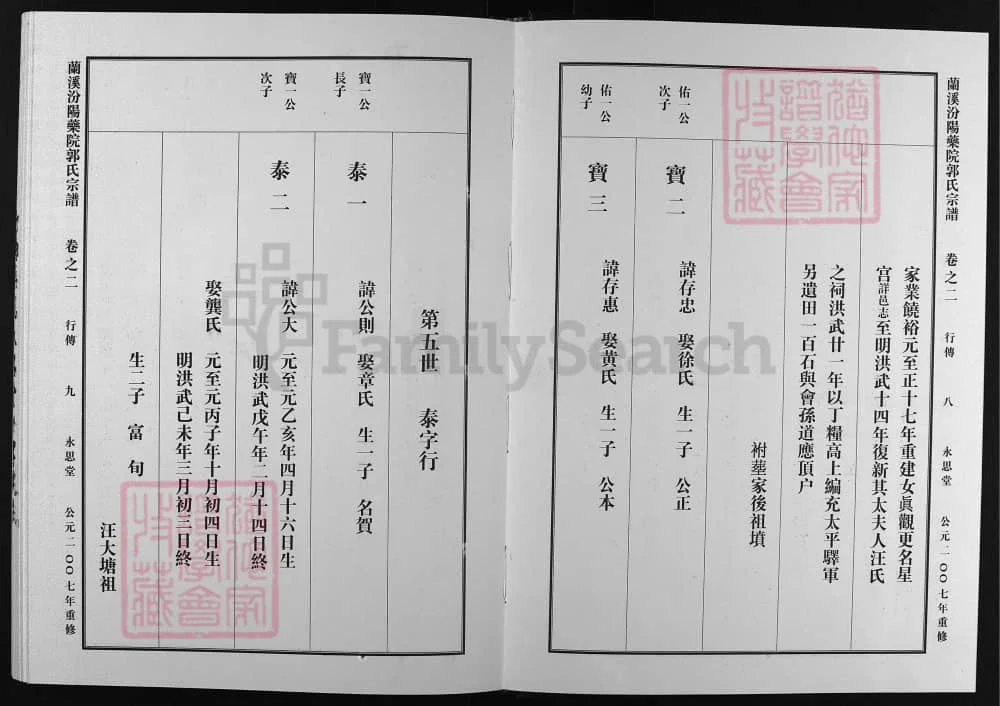 蘭溪汾陽藥院郭氏宗譜 卷之二 行傳 八 永思堂 公元二〇〇七年重修
家業饒裕元至正十七年重建女眞觀更名星
宮詳邑志至明洪武十四年復新其太夫人汪氏
之祠洪武廿一年以丁糧高上編充太平驛軍
另遺田一百石與會孫道應頂户
祔塟家後祖墳
佑一公
次子
寶二 諱存忠 娶徐氏 生一子 公正
佑一公
幼子
寶三 諱存惠 娶黄氏 生一子 公本
第五世 泰字行
寶一公
長子
泰一 諱公則 娶章氏 生一子 名賀
寶一公
次子
泰二 諱公大 元至元乙亥年四月十六日生
明洪武戊午年二月十四日終
娶龔氏 元至元丙子年十月初四日生
明洪武己未年三月初三日終
生二子 富 旬
汪大塘祖
蘭溪汾陽藥院郭氏宗譜 卷之二 行傳 九 永思堂 公元二〇〇七年重修
FamilySearch